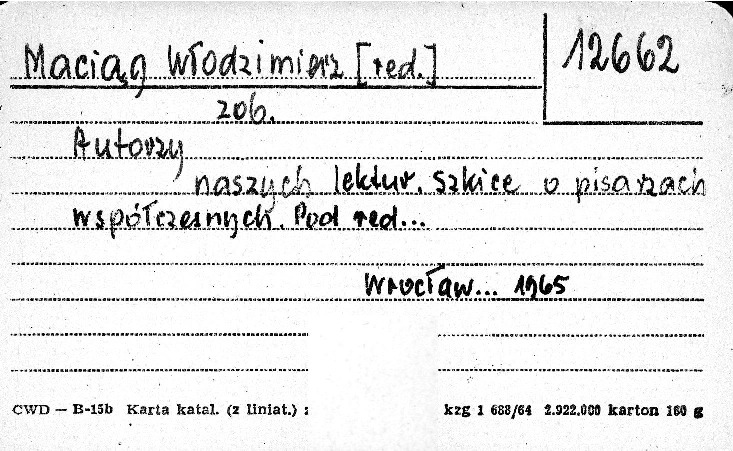 Maciąg Włodzimierz [red.]
12662
zob.
Autorzy
naszych lektur. Szkice o pisarzach
współczesnych. Pod red...
Wrocław... 1965
CWD — B-15b Karta katal. (z liniat.) :
kzg 1 688/64 2.922.000 karton 160 g